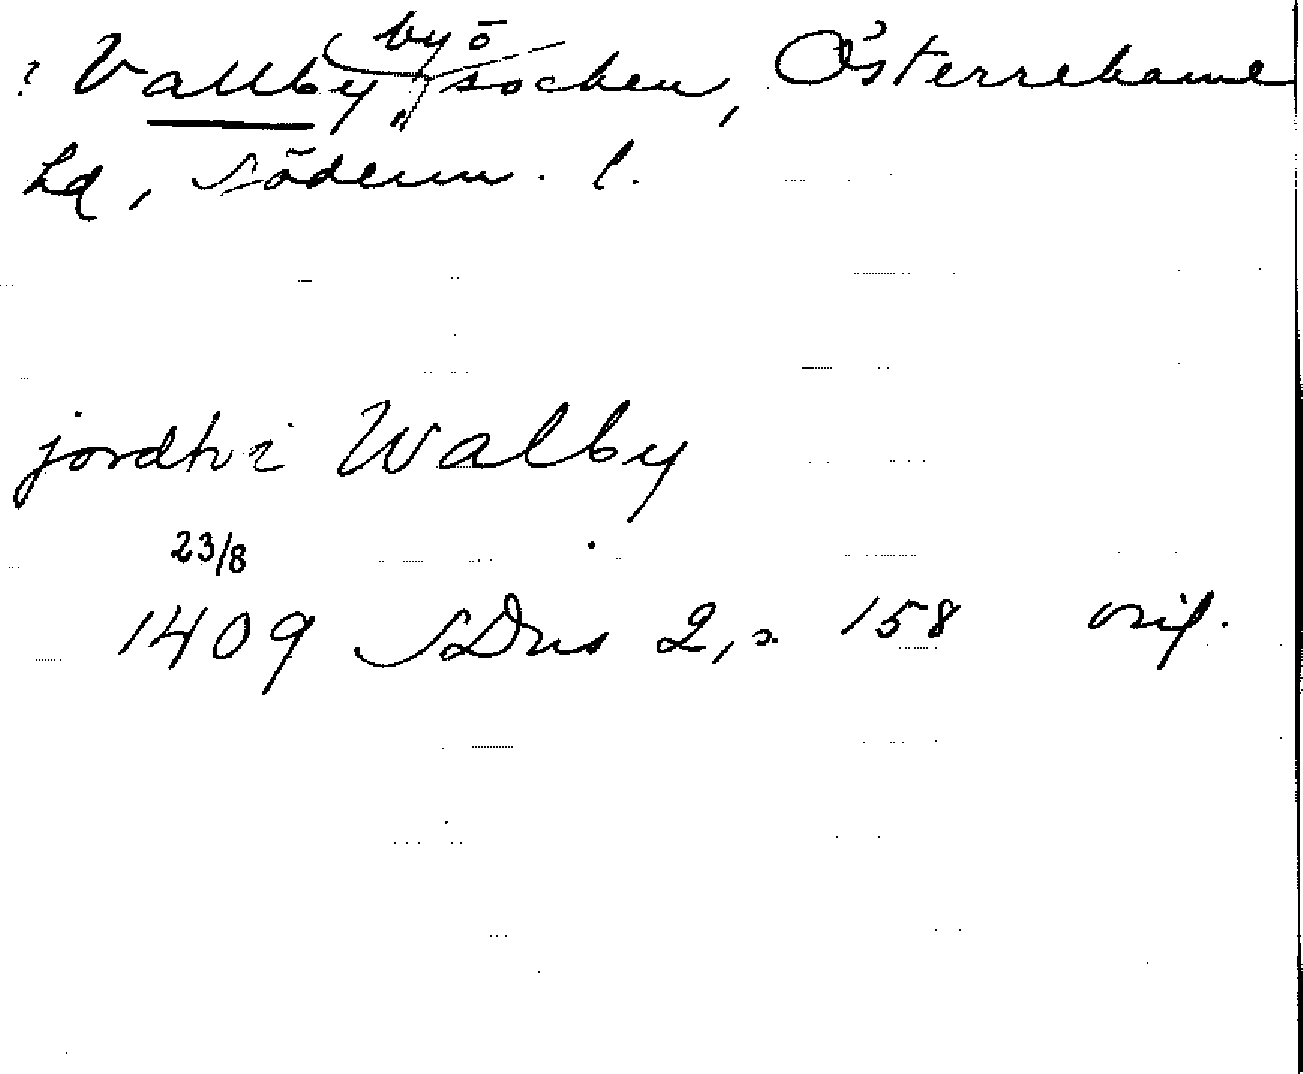 ? Vallby (by o " socken, Österrekarne
hd, Söderm. l.
jordh i Walby
23/8
1409 SDns 2, s. 158 orig.